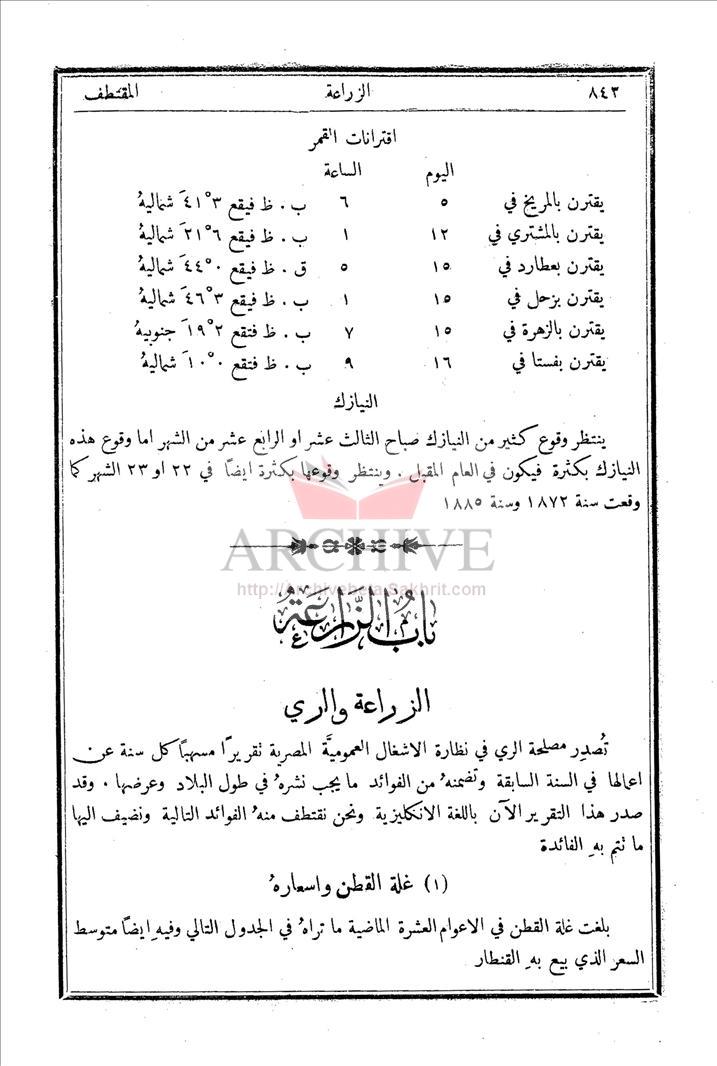 ٨٤٣ الزراعة المقتطف
اقترانات القمر
اليوم الساعة
يقترن بالمريخ في ٥ ٦ ب . ظ فيقع ٣° ٤١َ شماليهُ
يقترن بالمشتري في ١٢ ١ ب . ظ فيقع ٦° ٢١َ شماليهُ
يقترن بعطارد في ١٥ ٥ ق . ظ فيقع ٠° ٤٤َ شماليهُ
يقترن بزحل في ١٥ ١ ب . ظ فيقع ٣° ٤٦َ شماليهُ
يقترن بالزهرة في ١٥ ٧ ب . ظ فتقع ٢° ١٩َ جنوبيهُ
يقترن بفستا في ١٦ ٩ ب . ظ فتقع ٠° ١٠َ شماليهُ
النيازك
ينتظر وقوع كثير من النيازك صباح الثالث عشر او الرابع عشر من الشهر اما وقوع هذه
النيازك بكثرة فيكون في العام المقبل . وينتظر وقوعها بكثرة ايضًا في ٢٢ او ٢٣ الشهر كما
وقعت سنة ١٨٧٢ وسنة ١٨٨٥
ARCHIVE
http://Archivebeta.Sakhrit.com
باب الزراعة
الزراعة والري
تُصدِر مصلحة الري في نظارة الاشغال العموميَّة المصرية تقريرًا مسهبًا كل سنة عن
اعمالها في السنة السابقة وتضمنهُ من الفوائد ما يجب نشرهُ في طول البلاد وعرضها . وقد
صدر هذا التقرير الآن باللغة الانكليزية ونحن نقتطف منهُ الفوائد التالية ونضيف اليها
ما تتم بهِ الفائدة
(١) غلة القطن واسعارهُ
بلغت غلة القطن في الاعوام العشرة الماضية ما تراهُ في الجدول التالي وفيهِ ايضًا متوسط
السعر الذي بيع بهِ القنطار